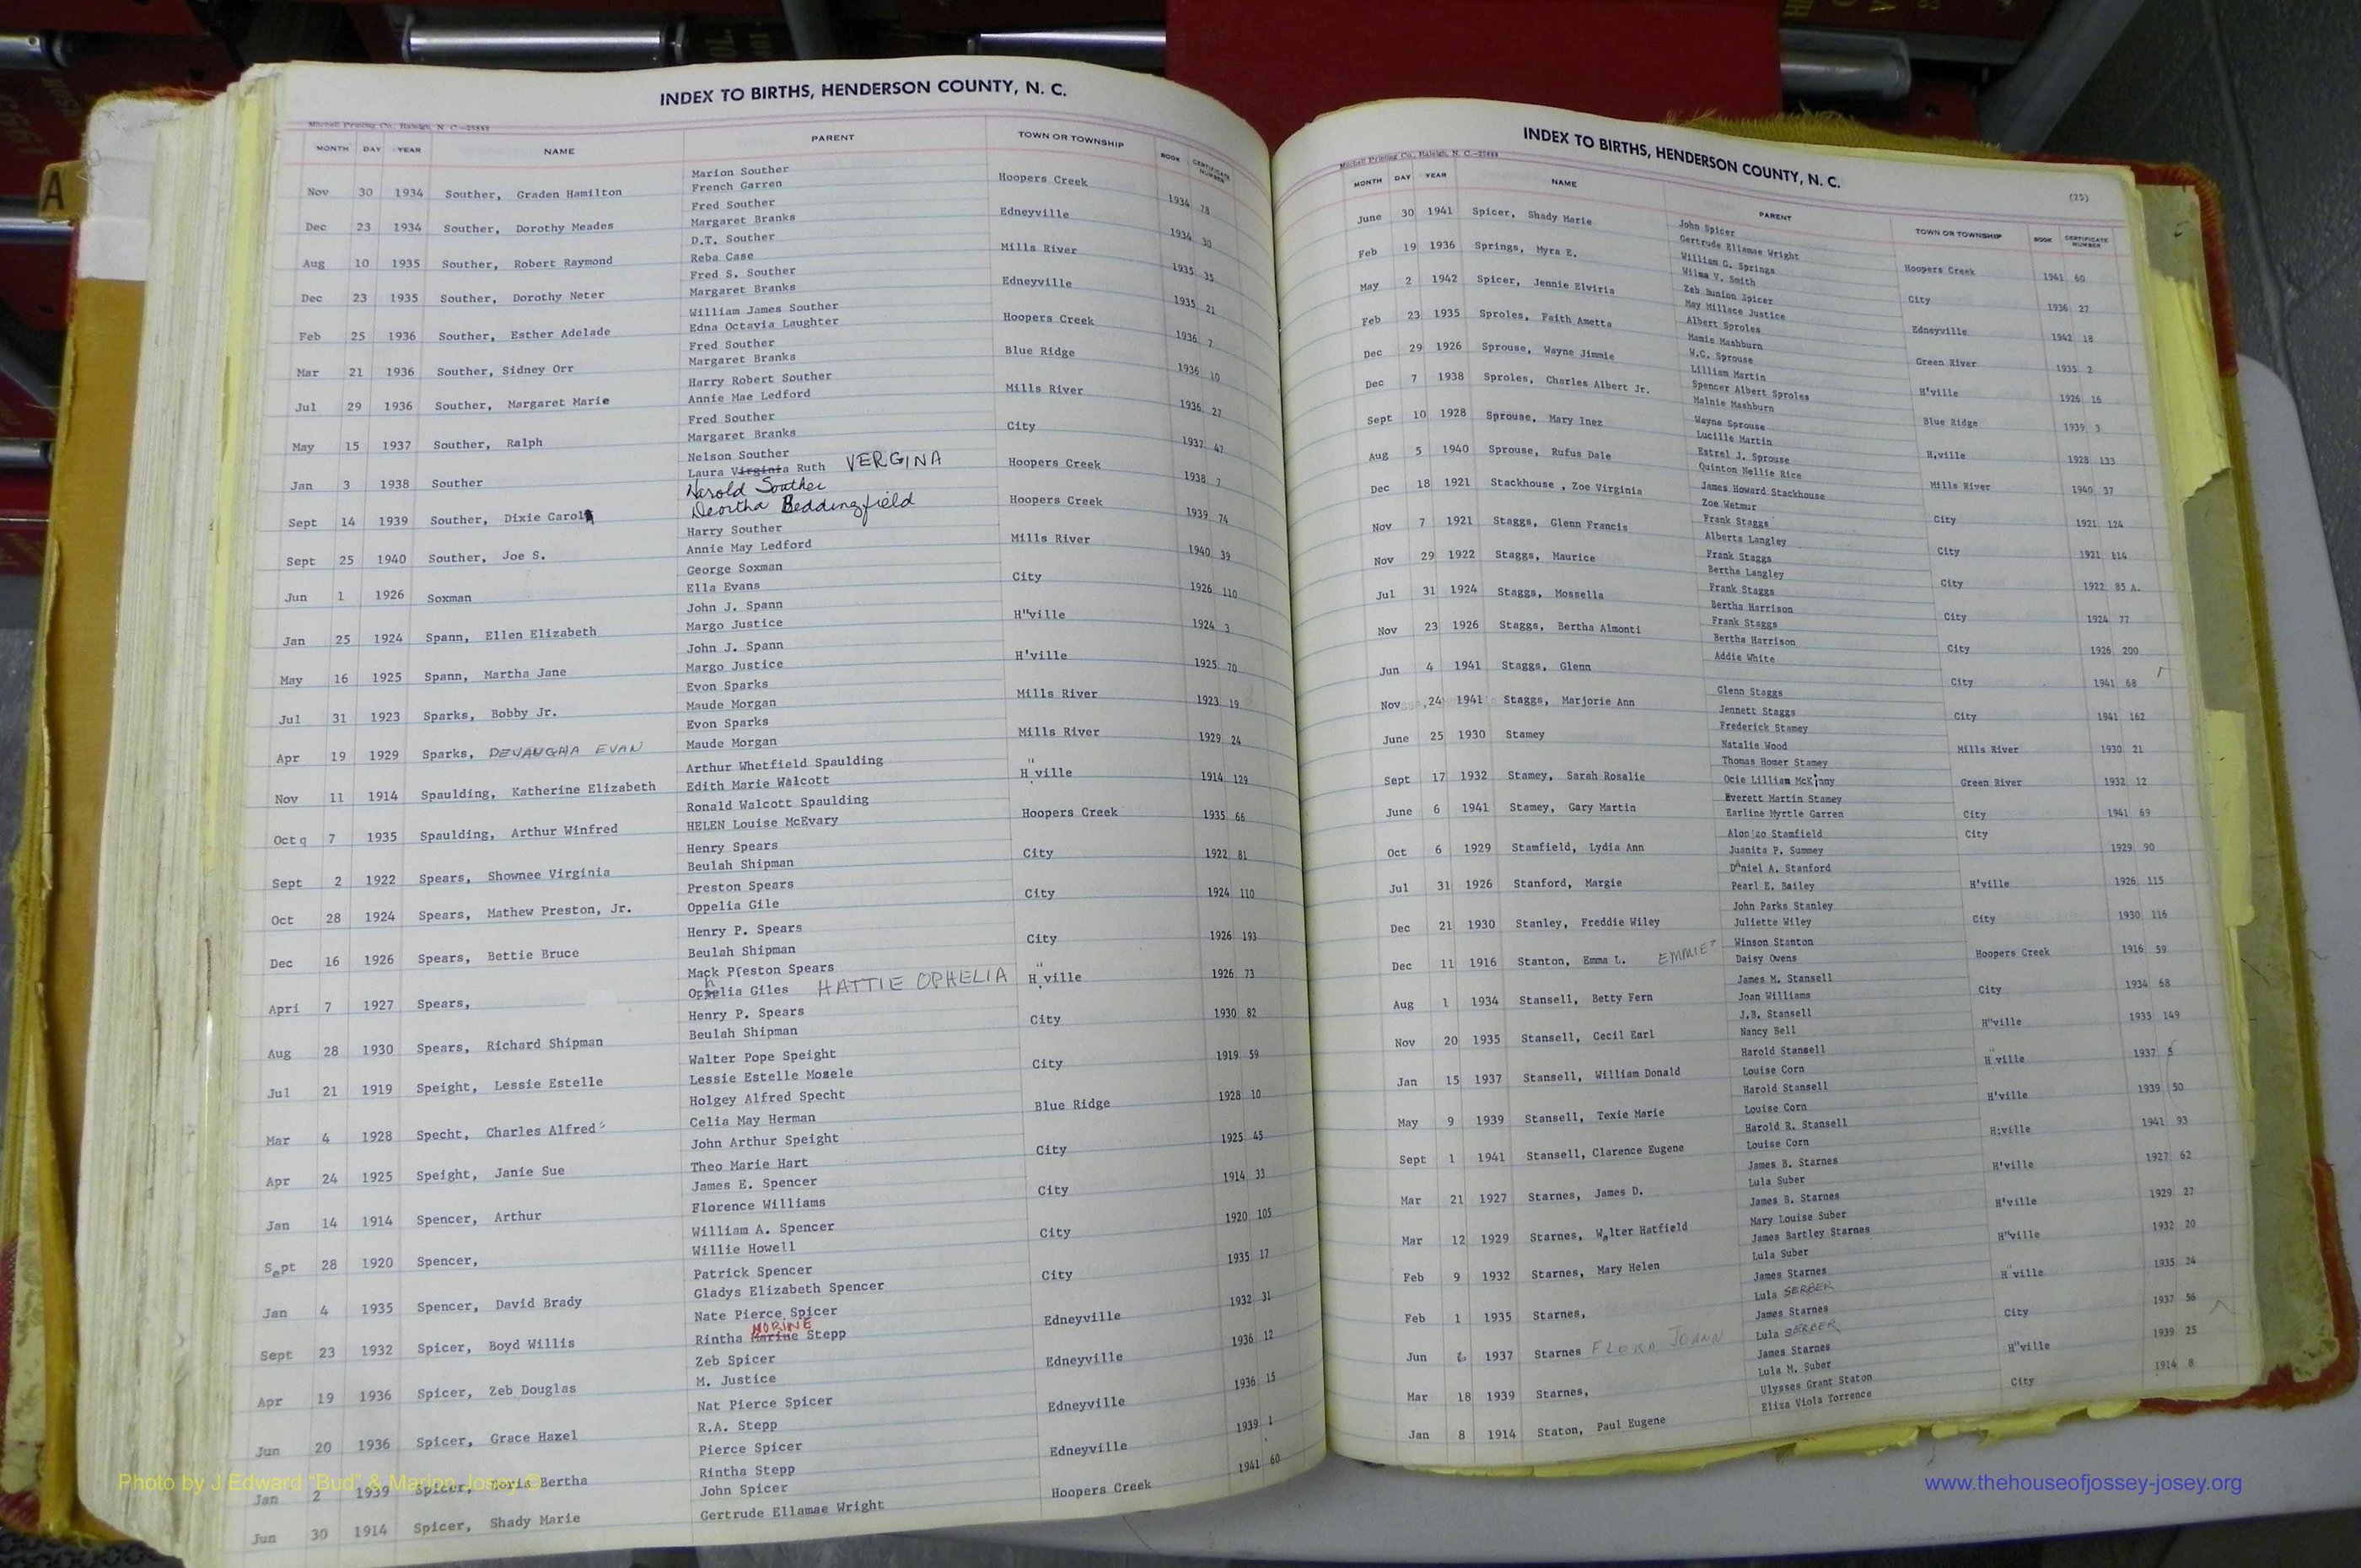 INDEX TO BIRTHS, HENDERSON COUNTY, N. C.
Mitchell Printing Co., Raleigh, N. C.—25688
MONTH DAY YEAR NAME PARENT TOWN OR TOWNSHIP BOOK CERTIFICATE NUMBER
Marion Souther
Nov 30 1934 Souther, Graden Hamilton French Garren Hoopers Creek 1934 78
Fred Souther
Dec 23 1934 Souther, Dorothy Meades Margaret Branks Edneyville 1934 30
D.T. Souther
Aug 10 1935 Souther, Robert Raymond Reba Case Mills River 1935 35
Fred S. Souther
Dec 23 1935 Souther, Dorothy Neter Margaret Branks Edneyville 1935 21
William James Souther
Feb 25 1936 Souther, Esther Adelade Edna Octavia Laughter Hoopers Creek 1936 7
Fred Souther
Mar 21 1936 Souther, Sidney Orr Margaret Branks Blue Ridge 1936 10
Harry Robert Souther
Jul 29 1936 Souther, Margaret Marie Annie Mae Ledford Mills River 1936 27
Fred Souther
May 15 1937 Souther, Ralph Margaret Branks City 1937 47
Nelson Souther
Jan 3 1938 Souther Laura Virginia Ruth VERGINA Hoopers Creek 1938 7
Harold Souther
Sept 14 1939 Souther, Dixie Carol Deortha Beddingfield Hoopers Creek 1939 74
Harry Souther
Sept 25 1940 Souther, Joe S. Annie May Ledford Mills River 1940 39
George Soxman
Jun 1 1926 Soxman Ella Evans City 1926 110
John J. Spann
Jan 25 1924 Spann, Ellen Elizabeth Margo Justice H"ville 1924 3
John J. Spann
May 16 1925 Spann, Martha Jane Margo Justice H'ville 1925 70
Evon Sparks
Jul 31 1923 Sparks, Bobby Jr. Maude Morgan Mills River 1923 19
Evon Sparks
Apr 19 1929 Sparks, DEVAUGHA EVAN Maude Morgan Mills River 1929 24
Arthur Whetfield Spaulding
Nov 11 1914 Spaulding, Katherine Elizabeth Edith Marie Walcott H"ville 1914 129
Ronald Walcott Spaulding
Oct q 7 1935 Spaulding, Arthur Winfred HELEN Louise McEvary Hoopers Creek 1935 66
Henry Spears
Sept 2 1922 Spears, Shownee Virginia Beulah Shipman City 1922 81
Preston Spears
Oct 28 1924 Spears, Mathew Preston, Jr. Oppelia Gile City 1924 110
Henry P. Spears
Dec 16 1926 Spears, Bettie Bruce Beulah Shipman City 1926 193
Mack Preston Spears
Apri 7 1927 Spears, Ophelia Giles HATTIE OPHELIA H"ville 1926 73
Henry P. Spears
Aug 28 1930 Spears, Richard Shipman Beulah Shipman City 1930 82
Walter Pope Speight
Jul 21 1919 Speight, Lessie Estelle Lessie Estelle Mozele City 1919 59
Holgey Alfred Specht
Mar 4 1928 Specht, Charles Alfred Celia May Herman Blue Ridge 1928 10
John Arthur Speight
Apr 24 1925 Speight, Janie Sue Theo Marie Hart City 1925 45
James E. Spencer
Jan 14 1914 Spencer, Arthur Florence Williams City 1914 33
William A. Spencer
Sept 28 1920 Spencer, Willie Howell City 1920 105
Patrick Spencer
Jan 4 1935 Spencer, David Brady Gladys Elizabeth Spencer City 1935 17
Nate Pierce Spicer
NORINE
Sept 23 1932 Spicer, Boyd Willis Rintha Marine Stepp Edneyville 1932 31
Zeb Spicer
Apr 19 1936 Spicer, Zeb Douglas M. Justice Edneyville 1936 12
Nat Pierce Spicer
Jun 20 1936 Spicer, Grace Hazel R.A. Stepp Edneyville 1936 15
Pierce Spicer
Jan 2 1939 Spicer, Doris Bertha Rintha Stepp Edneyville 1939 1
John Spicer
Jun 30 1914 Spicer, Shady Marie Gertrude Ellamae Wright Hoopers Creek 1941 60
INDEX TO BIRTHS, HENDERSON COUNTY, N. C.
Mitchell Printing Co., Raleigh, N. C.—25688
(25)
MONTH DAY YEAR NAME PARENT TOWN OR TOWNSHIP BOOK CERTIFICATE NUMBER
John Spicer
June 30 1941 Spicer, Shady Marie Gertrude Ellamae Wright Hoopers Creek 1941 60
William G. Springs
Feb 19 1936 Springs, Myra E. Wilma V. Smith City 1936 27
Zeb Bunion Spicer
May 2 1942 Spicer, Jennie Elviris May Millace Justice Edneyville 1942 18
Albert Sproles
Feb 23 1935 Sproles, Faith Ametta Mamie Mashburn Green River 1935 2
W.C. Sprouse
Dec 29 1926 Sprouse, Wayne Jimmie Lilliam Martin H'ville 1926 16
Spencer Albert Sproles
Dec 7 1938 Sproles, Charles Albert Jr. Malnie Mashburn Blue Ridge 1939 3
Wayne Sprouse
Sept 10 1928 Sprouse, Mary Inez Lucille Martin H,ville 1928 133
Estrel J. Sprouse
Aug 5 1940 Sprouse, Rufus Dale Quinton Nellie Rice Mills River 1940 37
James Howard Stackhouse
Dec 18 1921 Stackhouse , Zoe Virginia Zoe Wetmur City 1921 124
Frank Staggs
Nov 7 1921 Staggs, Glenn Francis Alberta Langley City 1921 114
Frank Staggs
Nov 29 1922 Staggs, Maurice Bertha Langley City 1922 85 A.
Frank Staggs
Jul 31 1924 Staggs, Mossella Bertha Harrison City 1924 77
Frank Staggs
Nov 23 1926 Staggs, Bertha Almonti Bertha Harrison City 1926 200
Jun 4 1941 Staggs, Glenn Addie White City 1941 68
Glenn Staggs
Nov 24 1941 Staggs, Marjorie Ann Jennett Staggs City 1941 162
Frederick Stamey
June 25 1930 Stamey Natalie Wood Mills River 1930 21
Thomas Homer Stamey
Sept 17 1932 Stamey, Sarah Rosalie Ocie Lilliam McKinny Green River 1932 12
Everett Martin Stamey
June 6 1941 Stamey, Gary Martin Earline Myrtle Garren City 1941 69
Alonzo Stamfield City
Oct 6 1929 Stamfield, Lydia Ann Juanita P. Summey 1929 90
Daniel A. Stanford
Jul 31 1926 Stanford, Margie Pearl E. Bailey H'ville 1926 115
John Parks Stanley
Dec 21 1930 Stanley, Freddie Wiley Juliette Wiley City 1930 116
Winson Stanton
Dec 11 1916 Stanton, Emma L. EMMIE? Daisy Owens Hoopers Creek 1916 59
James M. Stansell
Aug 1 1934 Stansell, Betty Fern Joan Williams City 1934 68
J.B. Stansell
Nov 20 1935 Stansell, Cecil Earl Nancy Bell H"ville 1935 149
Harold Stansell
Jan 15 1937 Stansell, William Donald Louise Corn H'ville 1937 5
Harold Stansell
May 9 1939 Stansell, Texie Marie Louise Corn H'ville 1939 50
Harold R. Stansell
Sept 1 1941 Stansell, Clarence Eugene Louise Corn H;ville 1941 93
James B. Starnes
Mar 21 1927 Starnes, James D. Lula Suber H'ville 1927 62
James B. Starnes
Mar 12 1929 Starnes, Walter Hatfield Mary Louise Suber H'ville 1929 27
James Bartley Starnes
Feb 9 1932 Starnes, Mary Helen Lula Suber H"ville 1932 20
James Starnes
Feb 1 1935 Starnes, Lula SERBER H"ville 1935 24
James Starnes
Jun 6 1937 Starnes FLORA JOANN Lula SERBER City 1937 56
James Starnes
Mar 18 1939 Starnes, Lula M. Suber H"ville 1939 25
Ulysses Grant Staton
Jan 8 1914 Staton, Paul Eugene Eliza Viola Torrence City 1914 8
A
Photo by J Edward "Bud" & Marion Josey ©
www.thehouseofjossey-josey.org